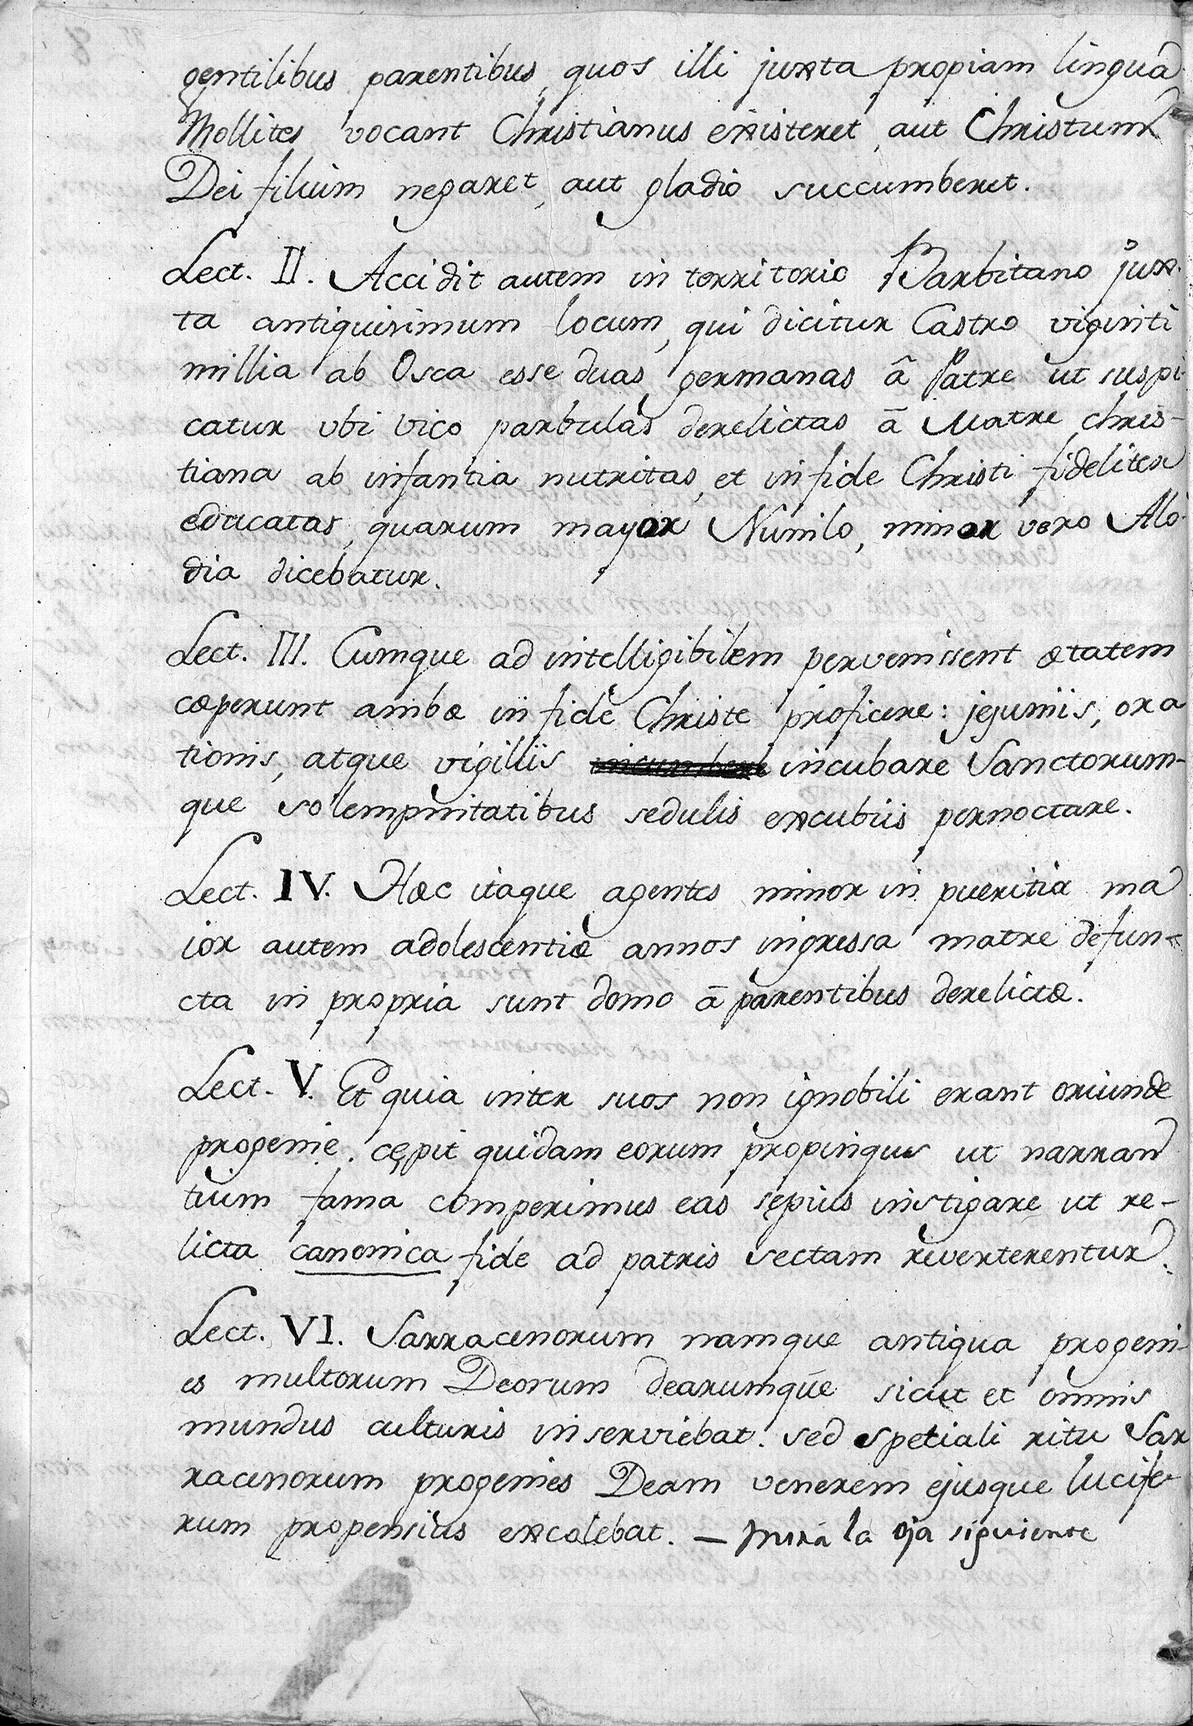 gentilibus parentibus, quos illi juxta propiam linguã
Mollites vocant Christianus existeret, aut Christum
Dei filium negaret, aut gladio succumberet.
Lect. II. Accidit autem in territorio Barbitano jux-
ta antiquisimum locum, qui dicitur Castro viginti
millia ab Osca esse duas germanas â Patre ut suspi
catur ubi vico parbulas derelictas â Matre chris-
tiana ab infantia nutritas, et in fide Christi fideliter
educatas, quarum mayor Nunilo, minor vero Alo-
dia dicebatur.
Lect. III. Cumque ad intelligibilem pervenissent ætatem
cæperunt ambæ in fide Christe proficere: jejuniis, ora
tionis, atque vigiliis incumbere incubare Sanctorum-
que solempnitatibus sedulis excubiis pernoctare.
Lect. IV. Hæc itaque agentes minor in pueritia ma
ior autem adolescentiæ annos ingressa matre defun-
cta in propria sunt domo â parentibus derelictæ.
Lect. V. Et quia inter suos non ignobili erant oriunde
progenie. cępit quidam eorum propinquus ut narran
tium fama comperimus eas sępius instigare ut re-
licta canonica fide ad patris sectam reverterentur.
Lect. VI. Sarracenorum namque antiqua progeni-
es multorum Deorum dearumque sicut et omnis
mundus culturis inserviebat. sed spetiali ritu Sar
racenorum progenies Deam venerem ejusque lucife
rum propensius excolebat. — mira la oja siguiente